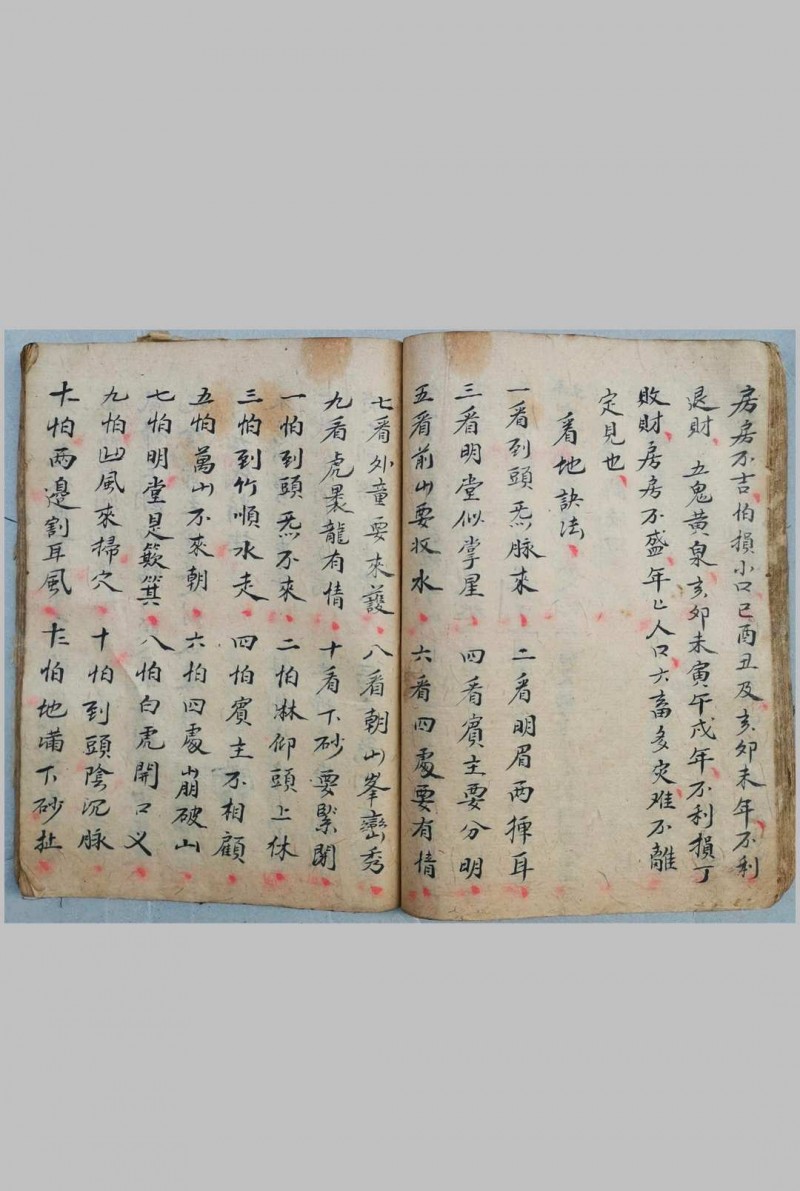 房房不吉怕損小口巳酉丑及亥卯未年不利
退財五鬼黃泉亥卯未寅午戌年不利損丁
敗財房房不盛年亡人口六畜多灾难不離
定見也
看地訣法
一看到頭炁脉來 二看明眉两揮耳
三看明堂似掌星 四看賓主要分明
五看前山要收水 六看四處要有情
七看外童要來護 八看朝山峯巒秀
九看虎裹龍有情 十看下砂要緊閉
一怕到頭炁不來 二怕淋仰頭上休
三怕到竹順水走 四怕賓主不相顧
五怕萬山不來朝 六怕四處崩破山
七怕明堂是簸箕 八怕白虎開口义
九怕凹風來掃穴 十怕到頭陰沉脉
十一怕两邉割耳風 十二怕地滿下砂扯